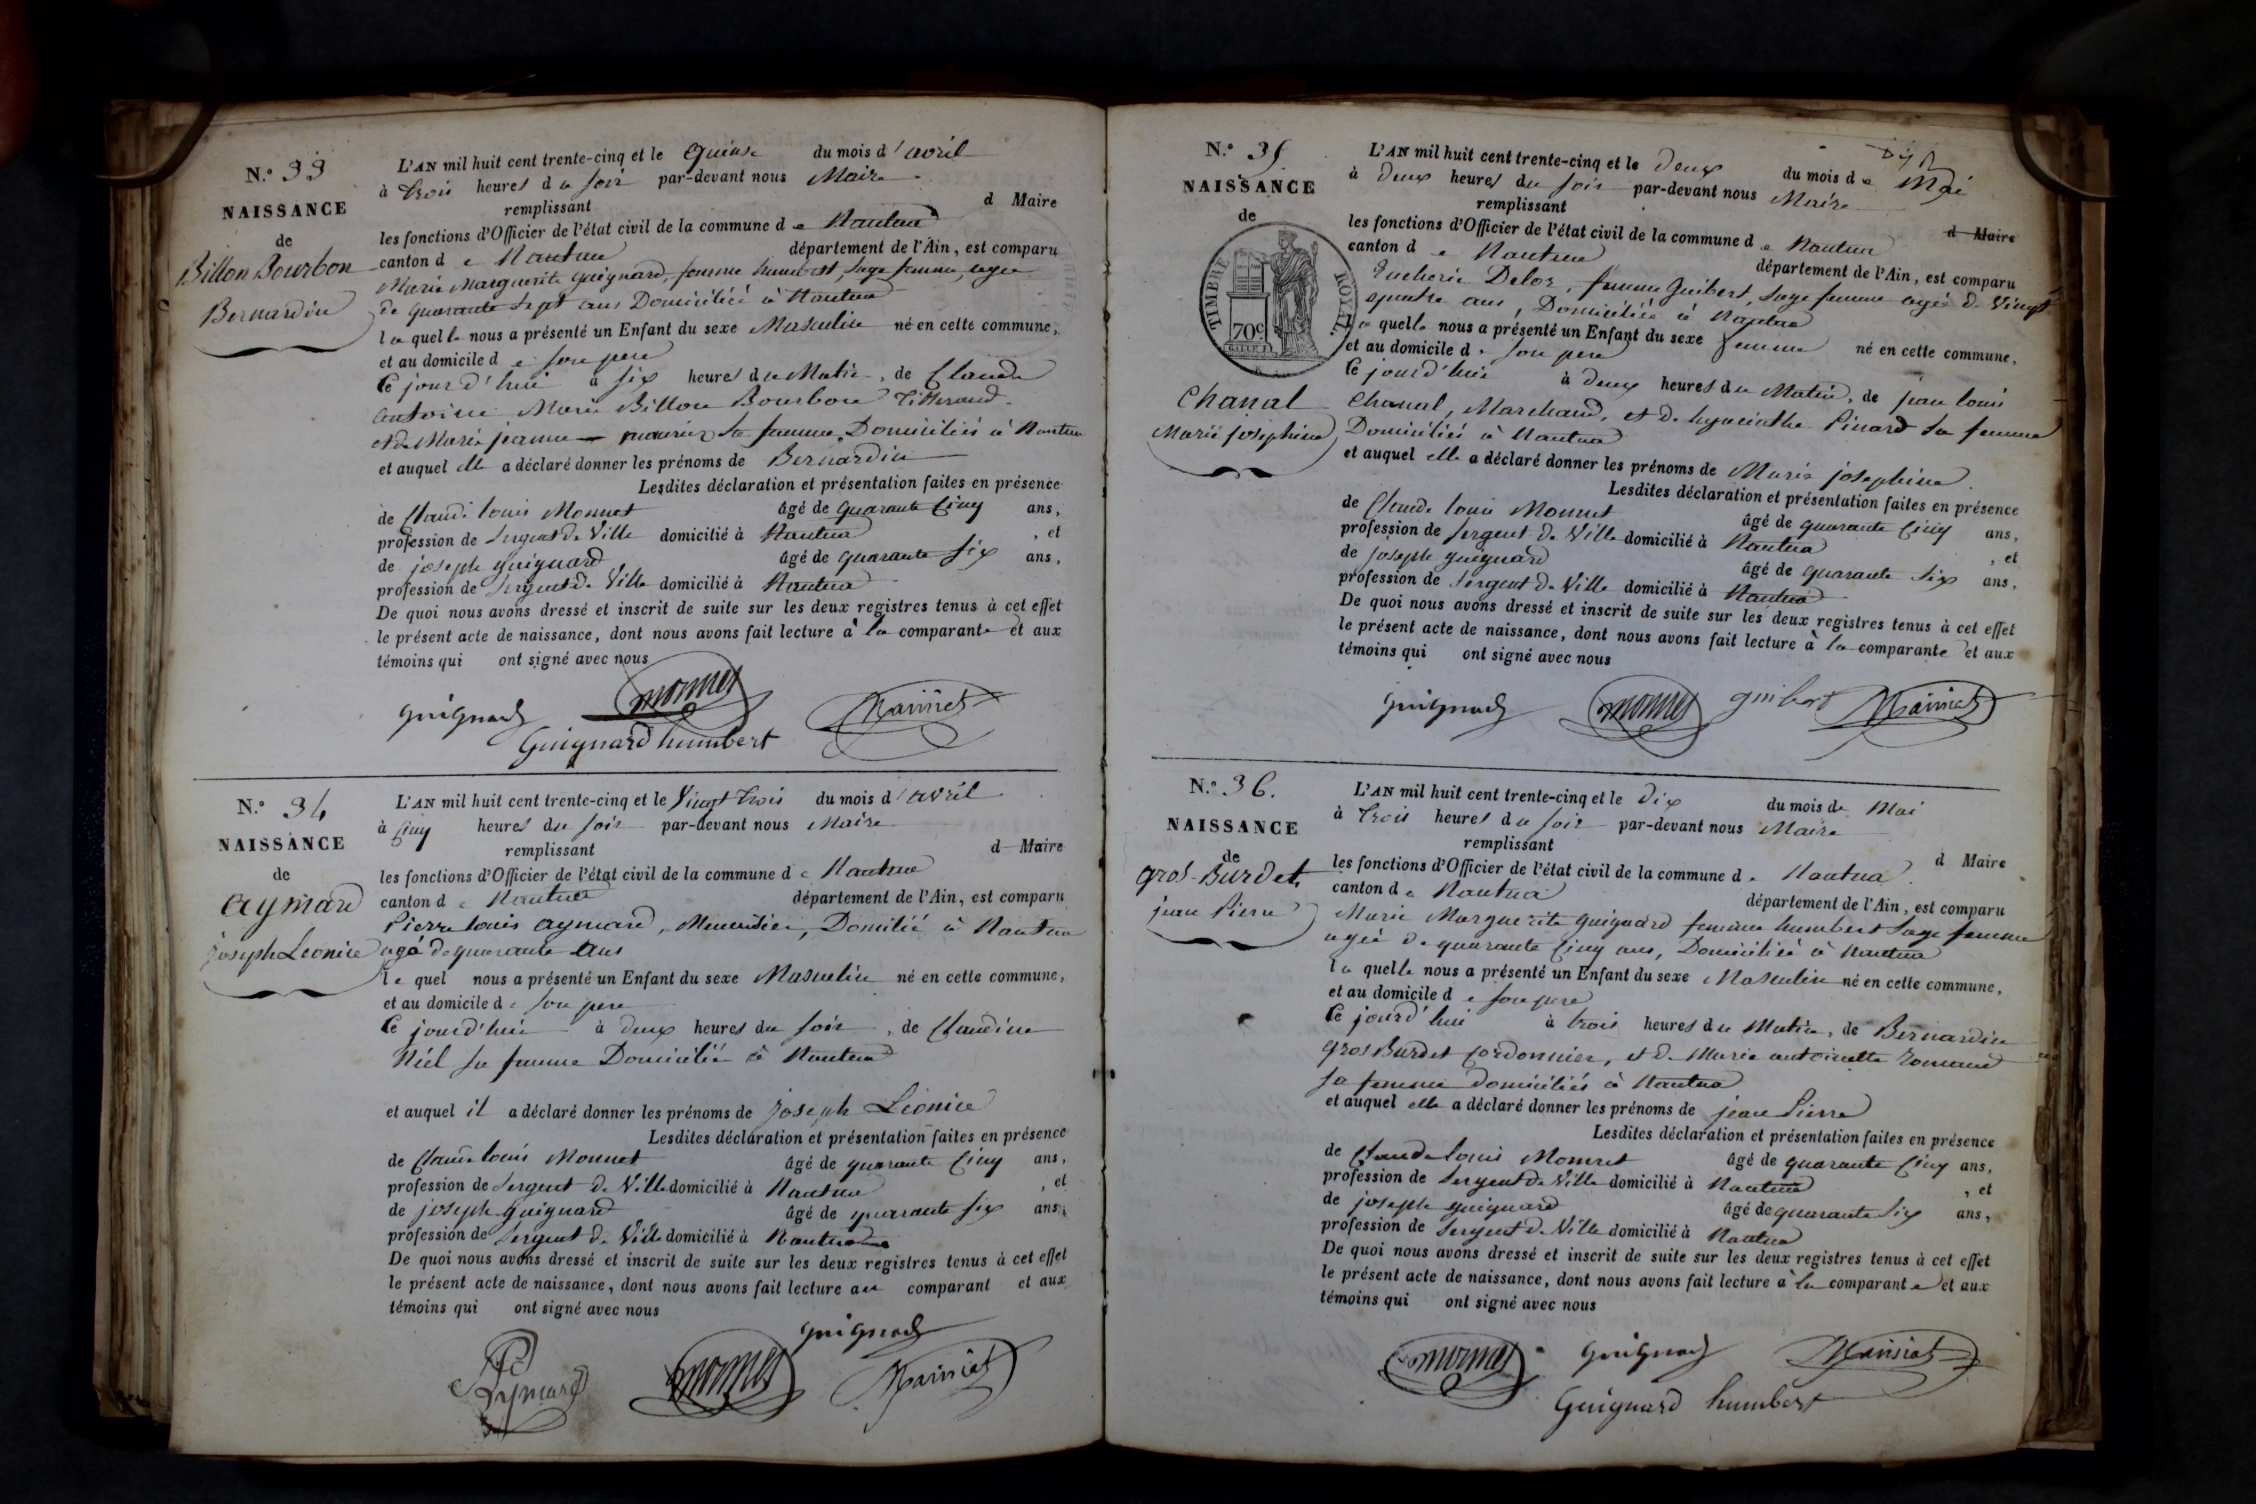 N.º 33
NAISSANCE
de
Billon Bourbon
Bernardin
L'AN mil huit cent trente-cinq et le quinze du mois d'avril
à trois heures du soir par-devant nous Maire
remplissant d Maire
les fonctions d'Officier de l'état civil de la commune de Nantua
canton de Nantua département de l'Ain, est comparu
Marie Marguerite guignard, femme humbert, Sage femme, agée
de quarante sept ans Domiciliée à Nantua
laquelle nous a présenté un Enfant du sexe Masculin né en cette commune,
et au domicile de son pere
Ce jourd'hui à six heures du Matin, de Claude
antoine Marie Billon Bourbon Tisserand
et de Marie jeanne sa femme, Domiciliés à Nantua
et auquel elle a déclaré donner les prénoms de Bernardin
Lesdites déclaration et présentation faites en présence
de Claude louis Monnet âgé de quarante Cinq ans,
profession de Sergent de Ville domicilié à Nantua, et
de joseph guignard âgé de quarante six ans,
profession de Sergent de Ville domicilié à Nantua
De quoi nous avons dressé et inscrit de suite sur les deux registres tenus à cet effet
le présent acte de naissance, dont nous avons fait lecture à la comparante et aux
témoins qui ont signé avec nous
guignard monnet
Guignard humbert
N.º 34
NAISSANCE
de
aymard
joseph Leonice
L'AN mil huit cent trente-cinq et le Vingt trois du mois d'avril
à Cinq heures du soir par-devant nous Maire
remplissant d Maire
les fonctions d'Officier de l'état civil de la commune de Nantua
canton de Nantua département de l'Ain, est comparu
Pierre louis aymard, Menuisier, Domilié à Nantua
agé de quarante ans
le quel nous a présenté un Enfant du sexe Masculin né en cette commune,
et au domicile de son pere
Ce jourd'hui à deux heures du soir, de Claudine
Niel sa femme Domiciliée à Nantua
et auquel il a déclaré donner les prénoms de joseph Léonice
Lesdites déclaration et présentation faites en présence
de Claude louis Monnet âgé de quarante Cinq ans,
profession de Sergent de Ville domicilié à Nantua, et
de joseph guignard âgé de quarante six ans,
profession de Sergent de Ville domicilié à Nantua
De quoi nous avons dressé et inscrit de suite sur les deux registres tenus à cet effet
le présent acte de naissance, dont nous avons fait lecture au comparant et aux
témoins qui ont signé avec nous
guignard
Aymard monnet
N.º 35
NAISSANCE
de
TIMBRE ROYAL
70c
Chanal
Marie josephine
L'AN mil huit cent trente-cinq et le deux du mois de Mai
à deux heures du soir par-devant nous Maire
remplissant d Maire
les fonctions d'Officier de l'état civil de la commune de Nantua
canton de Nantua département de l'Ain, est comparu
Delor, femme Guibert, Sage femme agée de Vingt
quatre ans, Domiciliée à Nantua
laquelle nous a présenté un Enfant du sexe femme né en cette commune,
et au domicile de son pere
Ce jourd'hui à deux heures du Matin, de jean louis
Chanal, Marchand, et de hyacinthe Pinard sa femme
Domiciliés à Nantua
et auquel elle a déclaré donner les prénoms de Marie josephine
Lesdites déclaration et présentation faites en présence
de Claude louis Monnet âgé de quarante Cinq ans,
profession de Sergent de Ville domicilié à Nantua, et
de joseph guignard âgé de quarante six ans,
profession de Sergent de Ville domicilié à Nantua
De quoi nous avons dressé et inscrit de suite sur les deux registres tenus à cet effet
le présent acte de naissance, dont nous avons fait lecture à la comparante et aux
témoins qui ont signé avec nous
guignard monnet guibert
N.º 36.
NAISSANCE
de
gros-Burdet
jean Pierre
L'AN mil huit cent trente-cinq et le dix du mois de Mai
à trois heures du soir par-devant nous Maire
remplissant d Maire
les fonctions d'Officier de l'état civil de la commune de Nantua
canton de Nantua département de l'Ain, est comparu
Marie Marguerite guignard femme humbert Sage femme
agée de quarante Cinq ans, Domiciliée à Nantua
laquelle nous a présenté un Enfant du sexe Masculin né en cette commune,
et au domicile de son pere
Ce jourd'hui à trois heures du Matin, de Bernardin
gros Burdet Cordonnier, et de Marie antoinette romand
sa femme domiciliés à Nantua
et auquel elle a déclaré donner les prénoms de jean Pierre
Lesdites déclaration et présentation faites en présence
de Claude louis Monnet âgé de quarante Cinq ans,
profession de Sergent de Ville domicilié à Nantua, et
de joseph guignard âgé de quarante Six ans,
profession de Sergent de Ville domicilié à Nantua
De quoi nous avons dressé et inscrit de suite sur les deux registres tenus à cet effet
le présent acte de naissance, dont nous avons fait lecture à la comparante et aux
témoins qui ont signé avec nous
monnet guignard
Guignard humbert